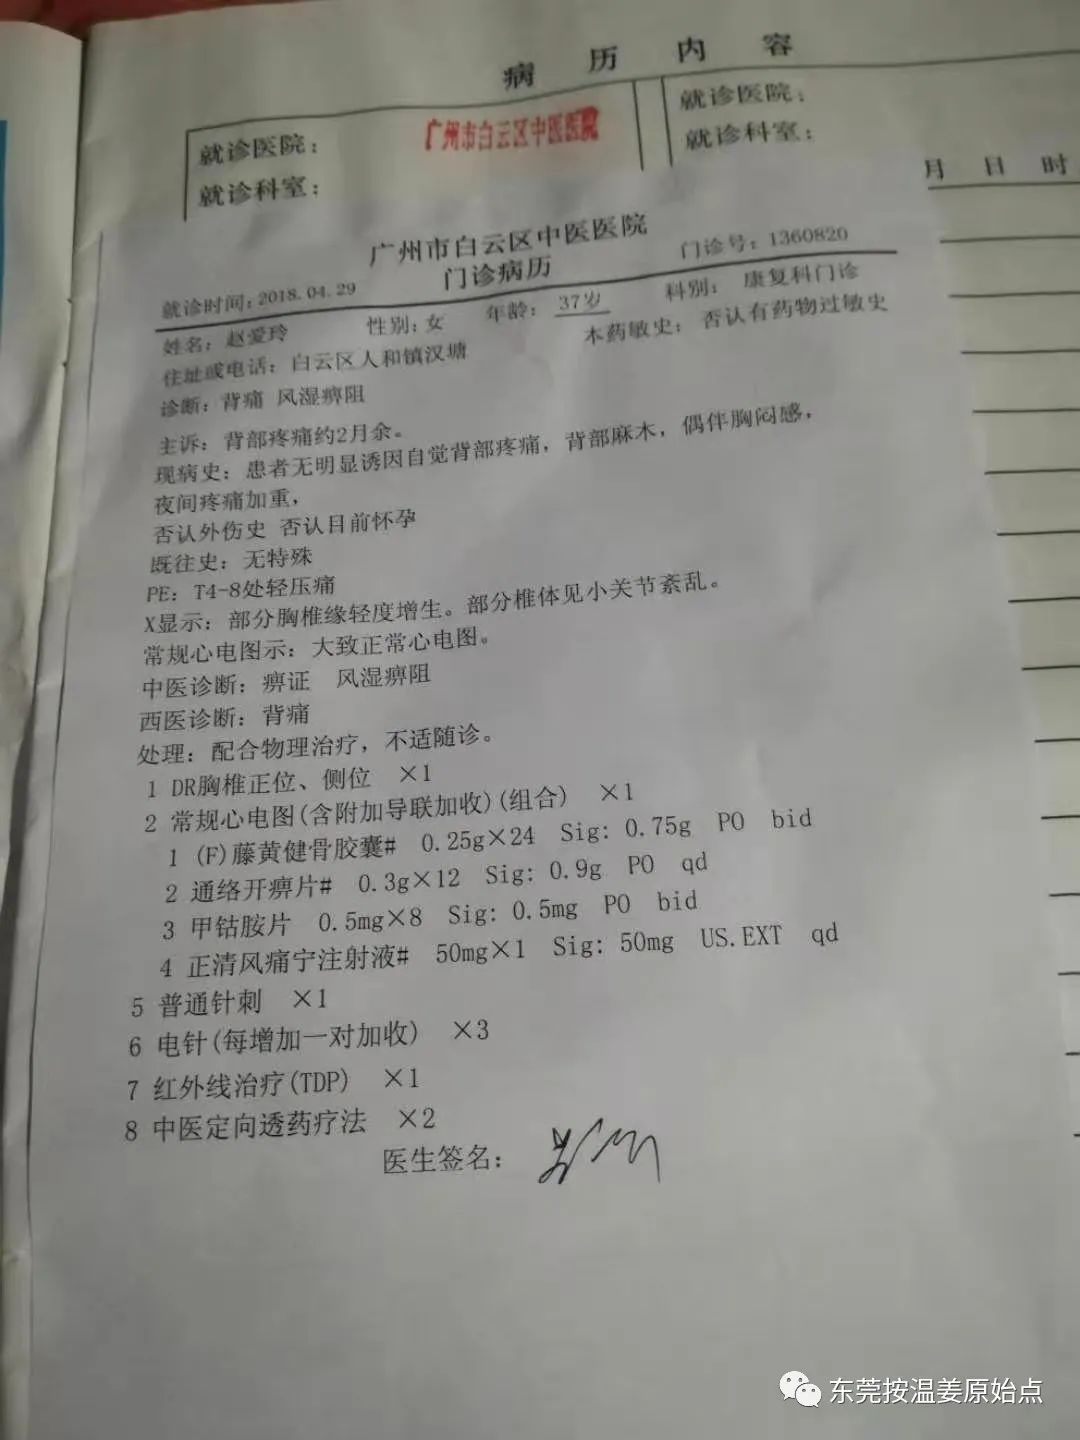 病 历 内 容
就诊医院：
广州市白云区中医医院
就诊科室：
就诊医院：
就诊科室：
月 日 时
广州市白云区中医医院
门诊病历
就诊时间:2018.04.29
门诊号:1360820
姓名：赵爱玲 性别:女 年龄： 37岁 科别： 康复科门诊
住址或电话：白云区人和镇汉塘 本药敏史：否认有药物过敏史
诊断：背痛 风湿痹阻
主诉：背部疼痛约2月余。
现病史：患者无明显诱因自觉背部疼痛，背部麻木，偶伴胸闷感，
夜间疼痛加重，
否认外伤史 否认目前怀孕
既往史：无特殊
PE：T4-8处轻压痛
X显示：部分胸椎缘轻度增生。部分椎体见小关节紊乱。
常规心电图示：大致正常心电图。
中医诊断：痹证 风湿痹阻
西医诊断：背痛
处理：配合物理治疗，不适随诊。
1 DR胸椎正位、侧位 ×1
2 常规心电图(含附加导联加收)(组合) ×1
1 (F)藤黄健骨胶囊# 0.25g×24 Sig: 0.75g PO bid
2 通络开痹片# 0.3g×12 Sig: 0.9g PO qd
3 甲钴胺片 0.5mg×8 Sig: 0.5mg PO bid
4 正清风痛宁注射液# 50mg×1 Sig: 50mg US.EXT qd
5 普通针刺 ×1
6 电针(每增加一对加收) ×3
7 红外线治疗(TDP) ×1
8 中医定向透药疗法 ×2
医生签名：
东莞按温姜原始点